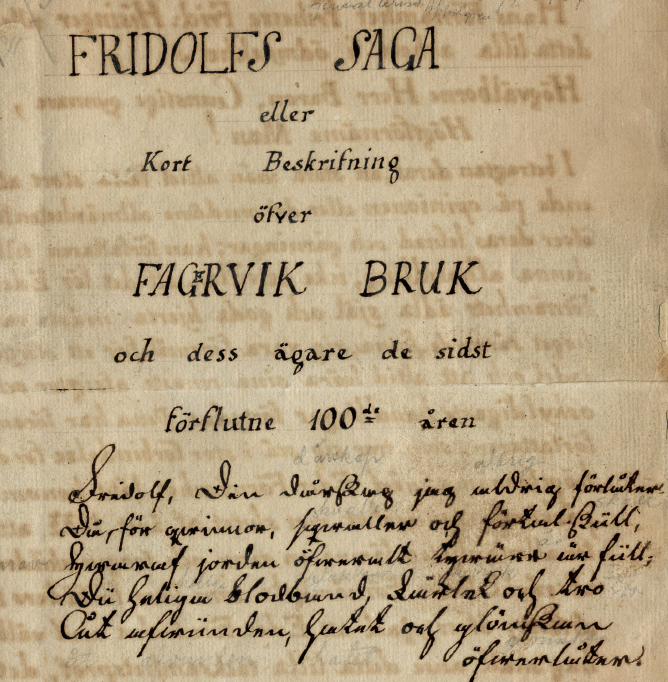 FRIDOLFS SAGA
eller
Kort Beskrifning
öfver
FAGERVIK BRUK
och dess ägare de sidst
förflutne 100de åren
Fridolf, Din dårskap jag aldrig förlåter
Du, för qvinnor, sqvaller och förtal skull,
hvaraf jorden öfverallt tyvärr är full;
Du heliga blodband, kärlek och tro
Åt afvunden, hatet och glömskan
öfverlåter.